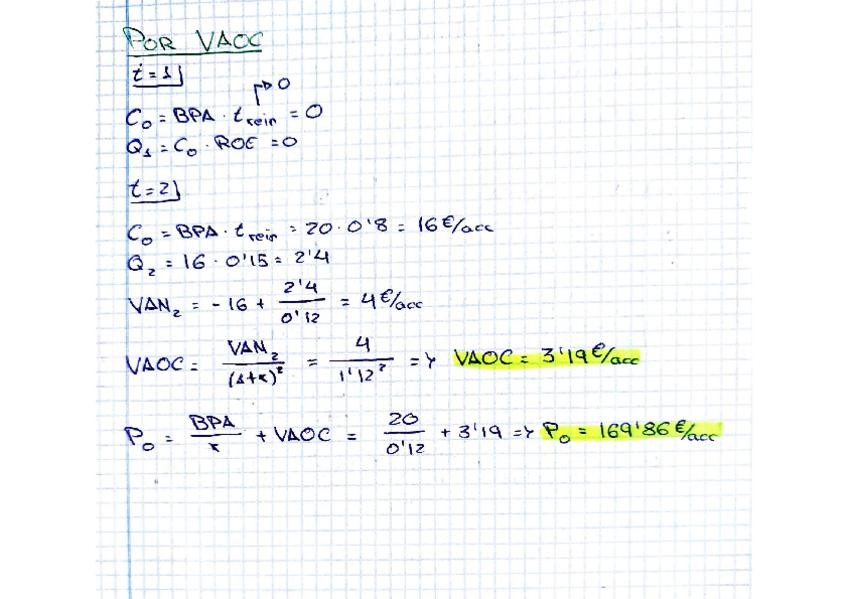 POR VAOC
t=1
→0
C₀ = BPA · t rein = 0
Q₁ = C₀ · ROE = 0
t=2
C₀ = BPA · t rein = 20 · 0'8 = 16 €/acc
Q₂ = 16 · 0'15 = 2'4
VAN₂ = -16 + 2'4 / 0'12 = 4 €/acc
VAOC = VAN₂ / (1+k)² = 4 / 1'12² => VAOC = 3'19 €/acc
P₀ = BPA / k + VAOC = 20 / 0'12 + 3'19 => P₀ = 169'86 €/acc